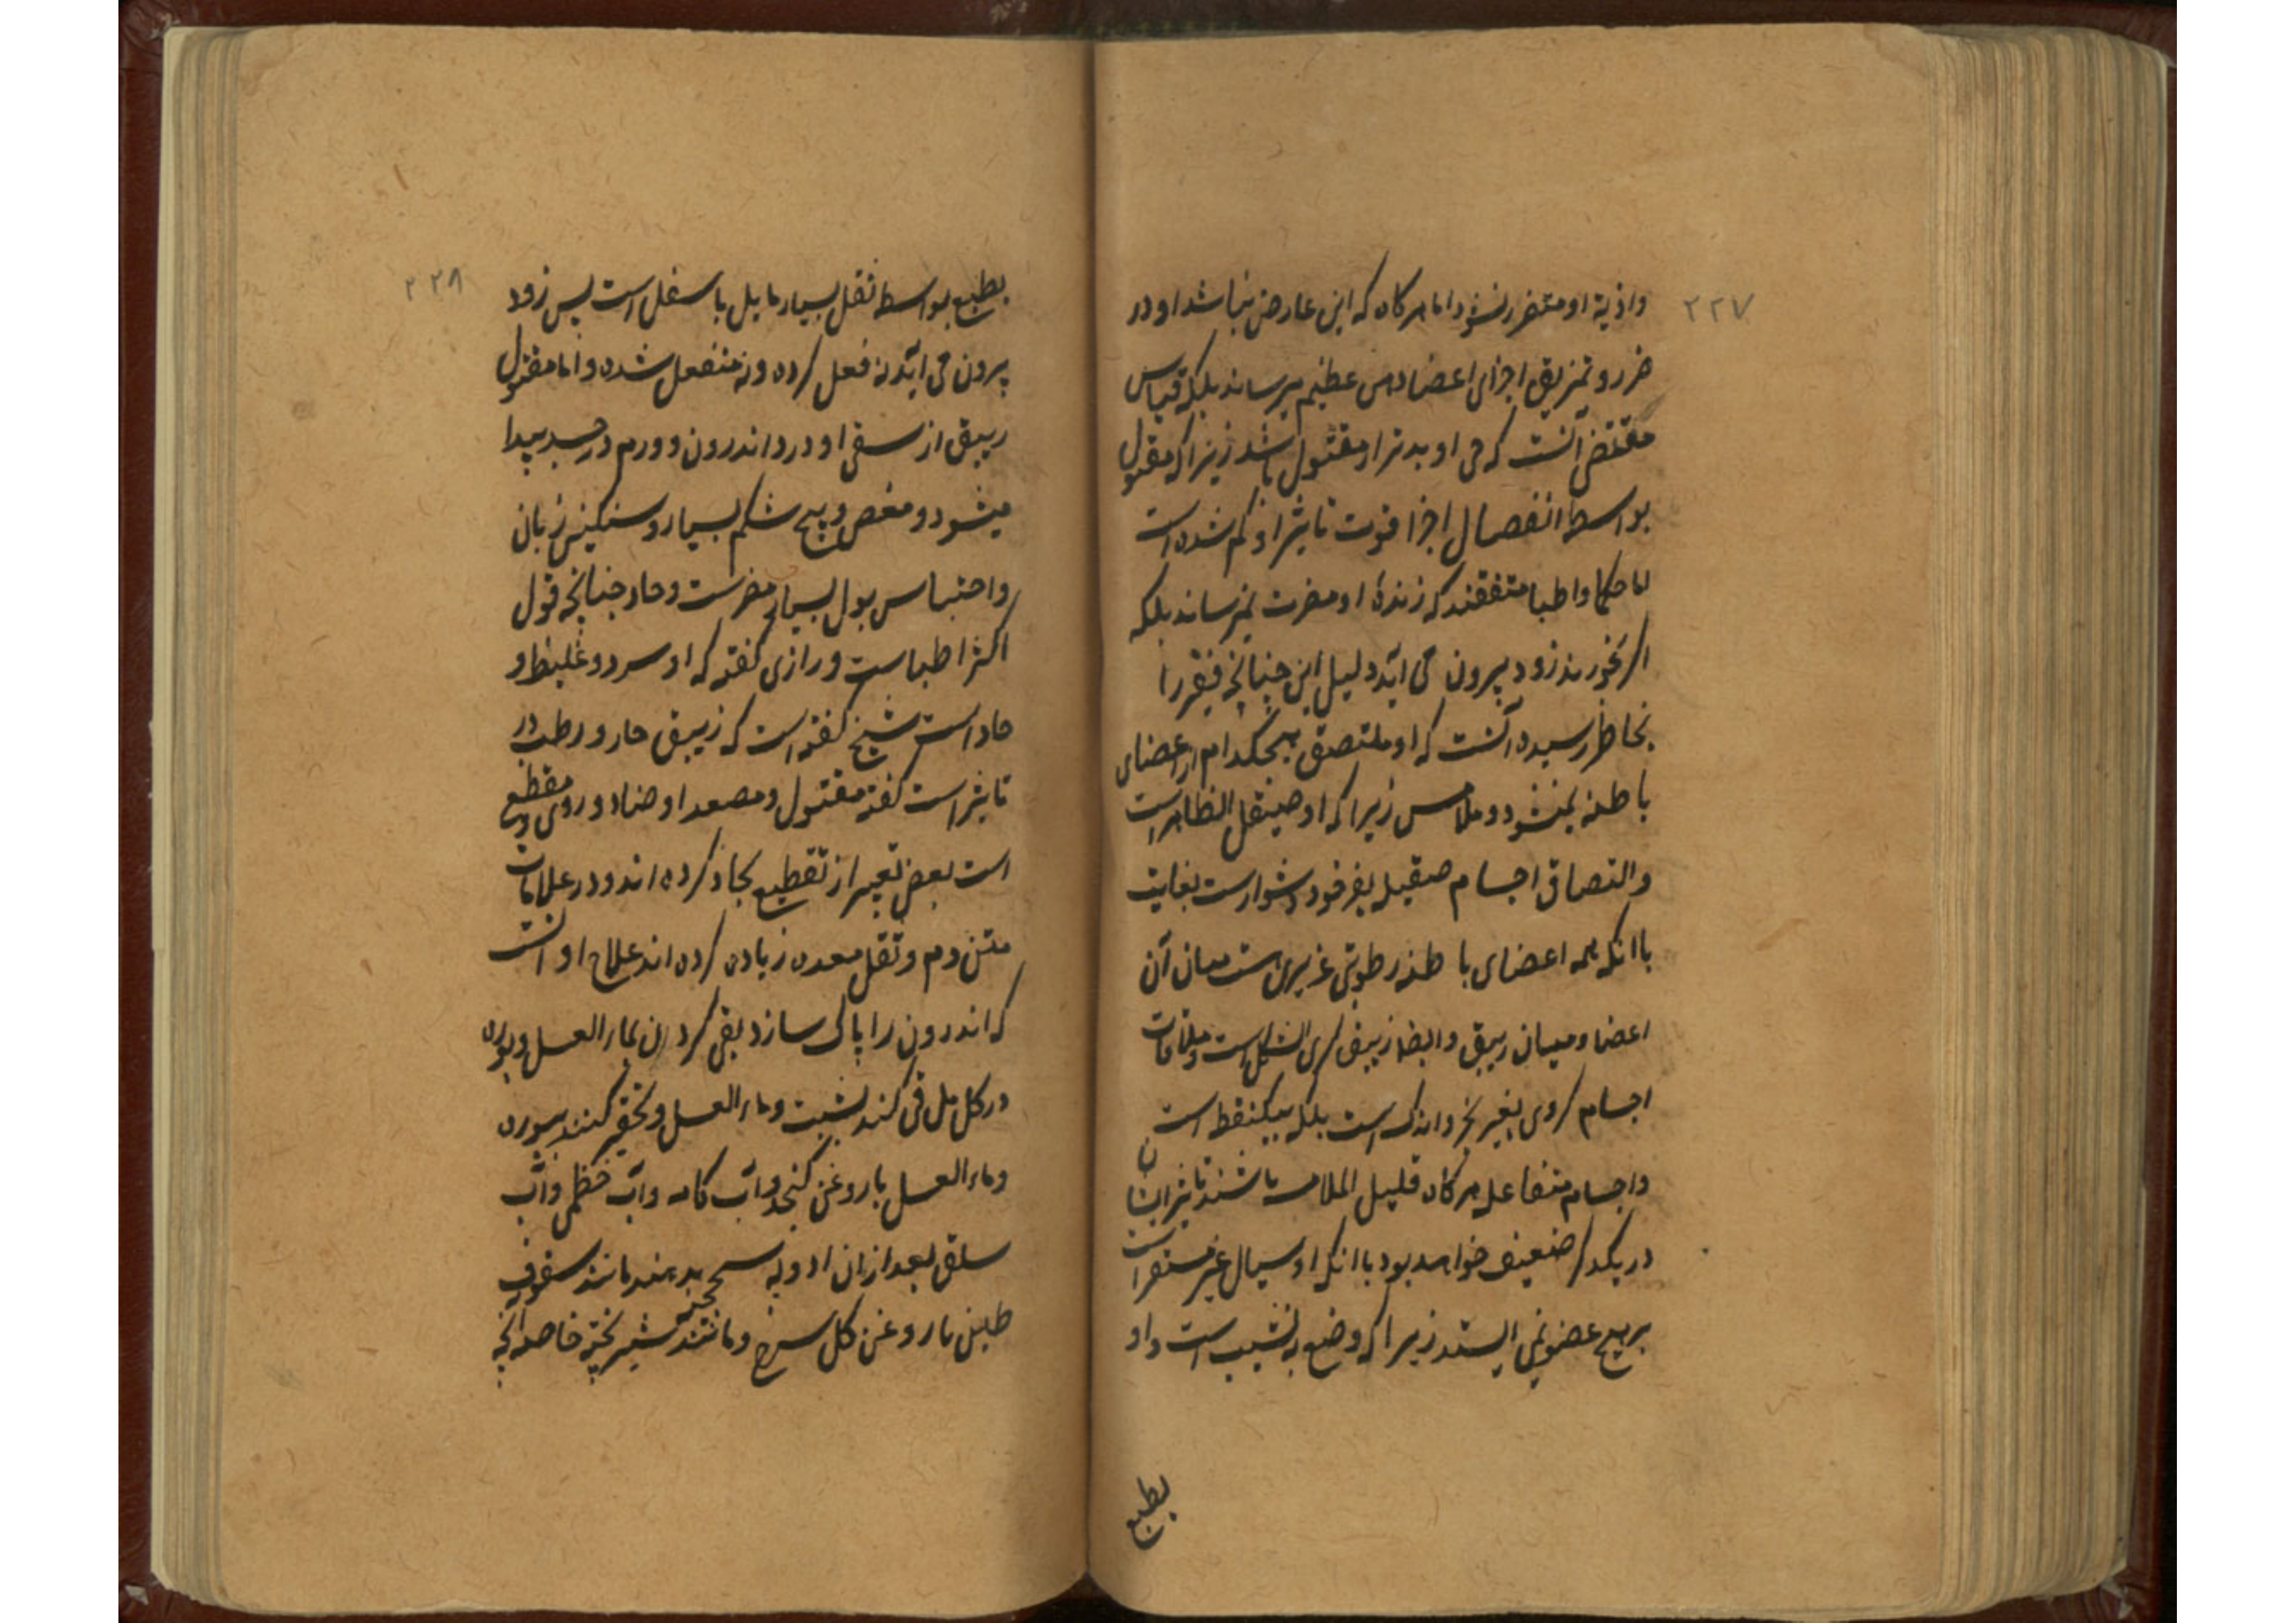 ۲۲۷
واذیة او متضرر نشود اما هرکاه که این عارض نباشد او در
ضرر و تمزیق اجزای اعضا دمی عظیم میرساند بلکه قیاس
مقتضی آنست که حی او بدتر از مقتول باشد زیرا که مقتول
بواسطه انفصال اجزا قوت تاثیر او کم شده است
اما حکما و اطبا متفقند که زندهٔ او مضرت نمیرساند بلکه
اکر بخورند زود بیرون می آید دلیل این چنانچه فقیر را
بخاطر رسیده آنست که او ملتصق بهیچکدام از اعضای
باطنه نمیشود و ملامس زیرا که او صیقل الظاهر است
والتصاق اجسام صیقل بغیر خود دشوارست بغایت
با انکه همه اعضای باطنه رطوبتی غریزی است میان آن
اعضا و میان زیبق و ایضا زیبق کری الشکل است و ملاقات
اجسام کروی بغیر بخرو اندک است بلکه بیکنقطه است
واجسام متفاعل هرکاه قلیل الملامسه باشند تاثیر ایشان
در یکدکر ضعیف خواهد بود با انکه او سیال غیر مستقر است
بر هیچ عضو نمی ایستد زیرا که وضع به نشیب است و او
بطبع
۲۲۸
بطبع بواسطه ثقل بسیار مایل باسفل است پس زود
بیرون می آید نه فعل کرده و نه منفعل شده و اما مقتول
زیبق از سقی او درد اندرون و ورم در جسد پیدا
میشود و مغص و پیچ شکم بسیار و سنکینی زبان
واحتباس بول بسیار مضرست و حاد چنانچه قول
اکثر اطباست و رازی کفته که او سرد و غلیظ و
حاد است شیخ کفته است که زیبق حار و رطب در
تاثیر است کفته مقتول و مصعد او ضاد و ردی و مقطع
است بعض تعبیر از تقطیع بحاد کرده اند و در علامات
متن دم و ثقل معده زیاده کرده اند علاج او آنست
که اندرون را پاک سازد بقی کردن بماء العسل و بوره
در کل مل قی کند بشبت و ماء العسل و تحقیر کنند ببوره
و ماء العسل با روغن کنجد و آب کامه و آب خطمی و آب
سلق بعد از ان ادویه سحجیه بدهند مانند سفوف
طین با روغن کل سرخ و مانند شیر پخته خاصه انچه